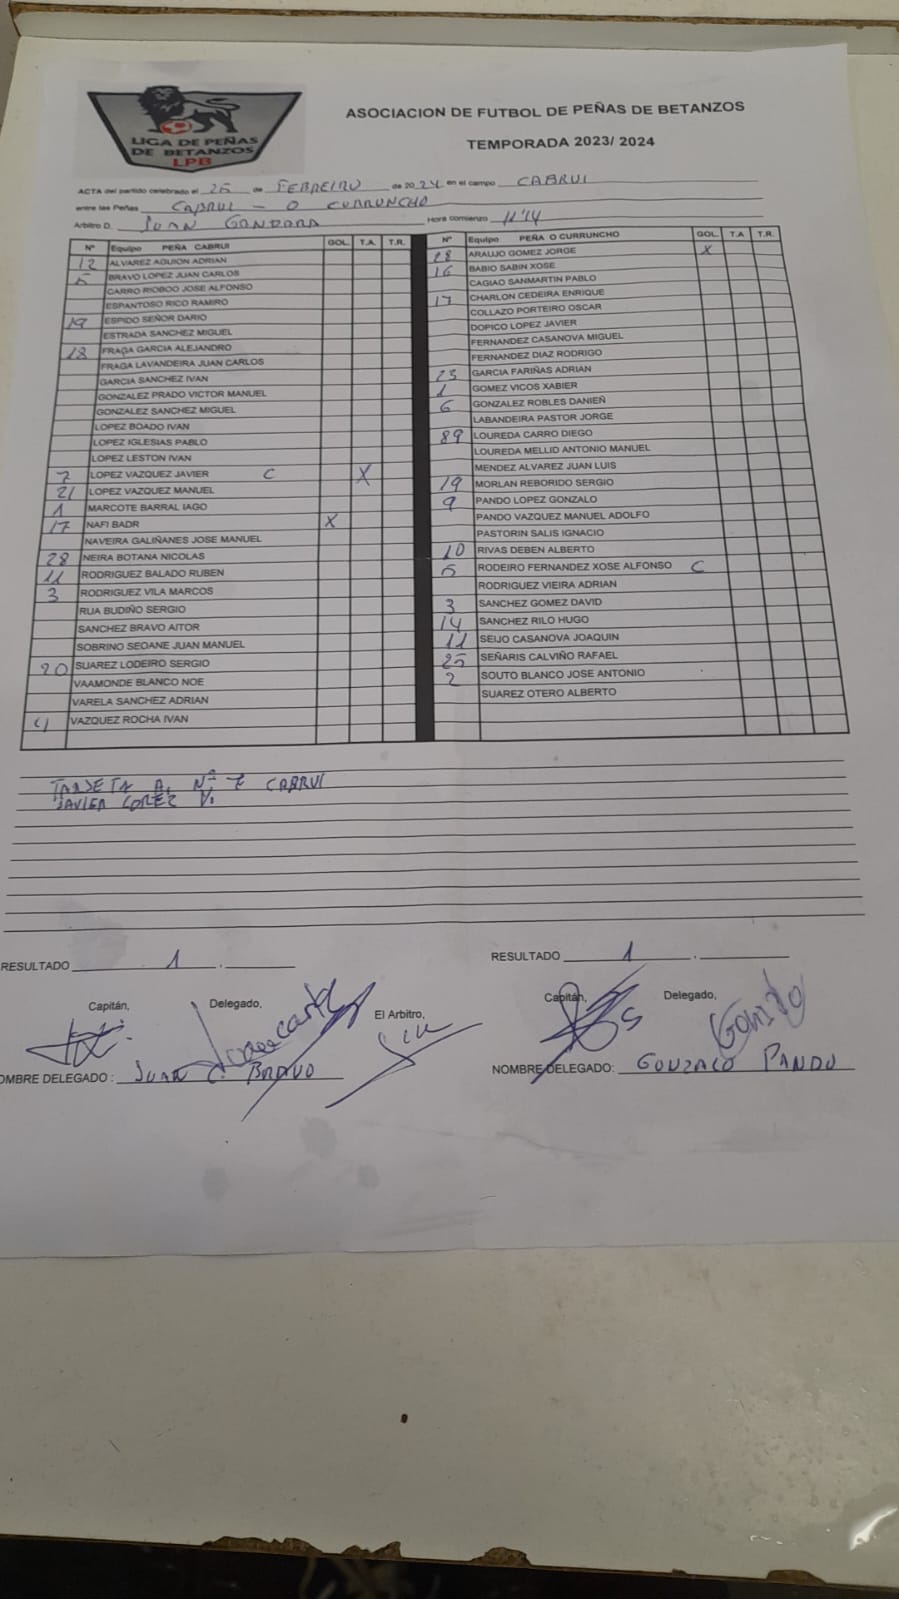 LIGA DE PEÑAS
DE BETANZOS
LPB
ASOCIACION DE FUTBOL DE PEÑAS DE BETANZOS
TEMPORADA 2023/ 2024
ACTA del partido celebrado el 25 de FEBREIRO de 2024 en el campo CABRUI
entre las Peñas CABRUI - O CURRUNCHO
Arbitro D. JUAN GONDARA Hora comienzo 11'14
Nº Equipo PEÑA CABRUI GOL. T.A. T.R.
12 ALVAREZ AGUION ADRIAN
5 BRAVO LOPEZ JUAN CARLOS
CARRO RIOBOO JOSE ALFONSO
ESPANTOSO RICO RAMIRO
19 ESPIDO SEÑOR DARIO
ESTRADA SANCHEZ MIGUEL
18 FRAGA GARCIA ALEJANDRO
FRAGA LAVANDEIRA JUAN CARLOS
GARCIA SANCHEZ IVAN
GONZALEZ PRADO VICTOR MANUEL
GONZALEZ SANCHEZ MIGUEL
LOPEZ BOADO IVAN
LOPEZ IGLESIAS PABLO
LOPEZ LESTON IVAN
7 LOPEZ VAZQUEZ JAVIER C X
21 LOPEZ VAZQUEZ MANUEL
1 MARCOTE BARRAL IAGO
17 NAFI BADR X
NAVEIRA GALIÑANES JOSE MANUEL
28 NEIRA BOTANA NICOLAS
11 RODRIGUEZ BALADO RUBEN
3 RODRIGUEZ VILA MARCOS
RUA BUDIÑO SERGIO
SANCHEZ BRAVO AITOR
SOBRINO SEOANE JUAN MANUEL
20 SUAREZ LODEIRO SERGIO
VAAMONDE BLANCO NOE
VARELA SANCHEZ ADRIAN
4 VAZQUEZ ROCHA IVAN
Nº Equipo PEÑA O CURRUNCHO GOL. T.A T.R.
28 ARAUJO GOMEZ JORGE X
16 BABIO SABIN XOSE
CAGIAO SANMARTIN PABLO
17 CHARLON CEDEIRA ENRIQUE
COLLAZO PORTEIRO OSCAR
DOPICO LOPEZ JAVIER
FERNANDEZ CASANOVA MIGUEL
FERNANDEZ DIAZ RODRIGO
23 GARCIA FARIÑAS ADRIAN
1 GOMEZ VICOS XABIER
6 GONZALEZ ROBLES DANIEÑ
LABANDEIRA PASTOR JORGE
89 LOUREDA CARRO DIEGO
LOUREDA MELLID ANTONIO MANUEL
MENDEZ ALVAREZ JUAN LUIS
19 MORLAN REBORIDO SERGIO
9 PANDO LOPEZ GONZALO
PANDO VAZQUEZ MANUEL ADOLFO
PASTORIN SALIS IGNACIO
10 RIVAS DEBEN ALBERTO
5 RODEIRO FERNANDEZ XOSE ALFONSO C
RODRIGUEZ VIEIRA ADRIAN
3 SANCHEZ GOMEZ DAVID
14 SANCHEZ RILO HUGO
11 SEIJO CASANOVA JOAQUIN
25 SEÑARIS CALVIÑO RAFAEL
2 SOUTO BLANCO JOSE ANTONIO
SUAREZ OTERO ALBERTO
TARJETA A. Nº 7 CABRUI
JAVIER LOPEZ V.
RESULTADO 1 . RESULTADO 1 .
Capitán, Delegado, El Arbitro, Capitán, Delegado,
Gonzalo
OMBRE DELEGADO : JUAN C. BRAVO NOMBRE DELEGADO: GONZALO PANDO